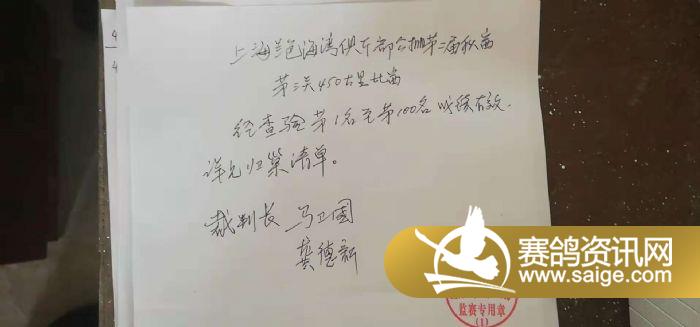 上海蓝色海湾俱乐部公棚第二届秋赛
第三关450公里比赛
经查验第1名至第100名成绩有效.
详见归巢清单。
裁判长 马卫国
龚德新
赛鸽资讯网
www.saige.com
监赛专用章
(1)